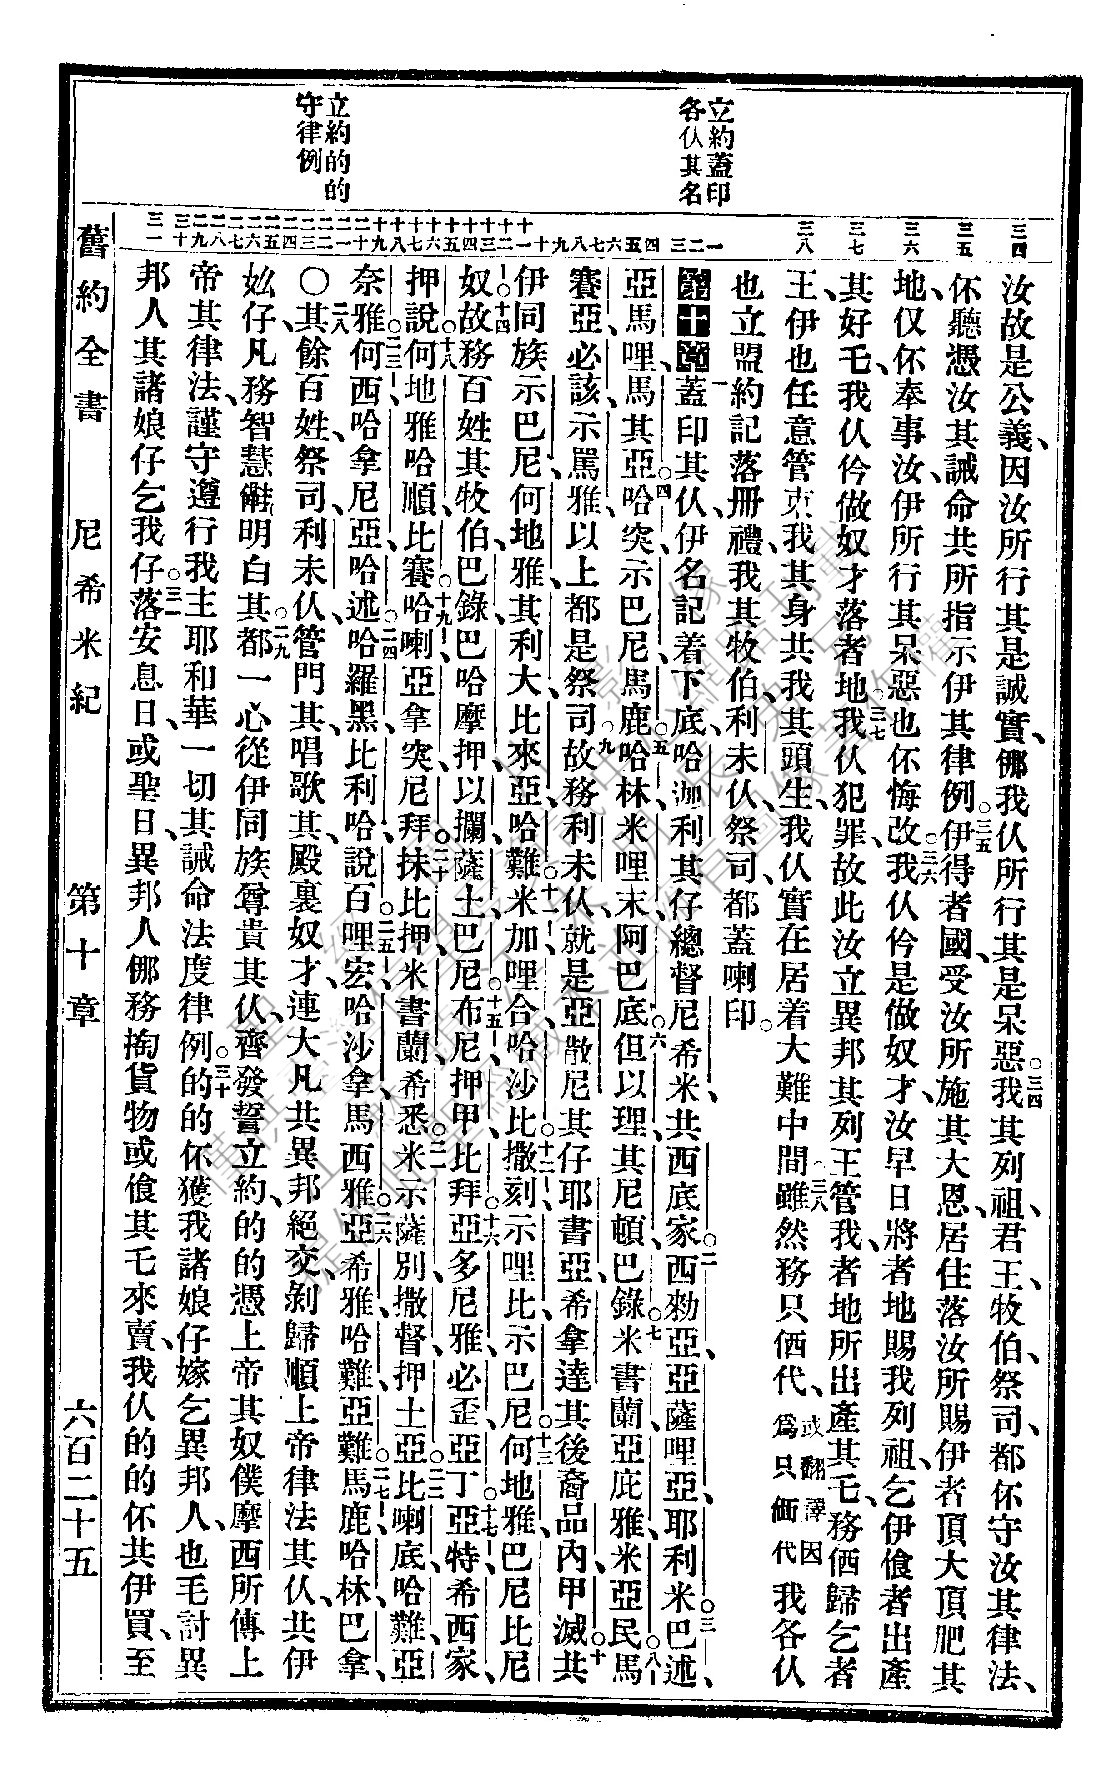 立約蓋印
各仈其名
立約的的
守律例
三四
三五
三六
三七
三八
一
二
三
四
五
六
七
八
九
十
十一
十二
十三
十四
十五
十六
十七
十八
十九
二十
二一
二二
二三
二四
二五
二六
二七
二八
二九
三十
三一
汝故是公義、因汝所行其是誠實、㑚我仈所行其是呆惡。○三四我其列祖、君王、牧伯、祭司、都伓守汝其律法、
伓聽憑汝其誡命、共所指示伊其律例。○三五伊得者國、受汝所施其大恩、居住落汝所賜伊者頂大頂肥其
地、仅伓奉事汝、伊所行其呆惡也伓悔改。○三六我仈仱是做奴才、汝早日將者地賜我列祖、乞伊食者出產
其好乇、我仈仱做奴才落者地。○三七我仈犯罪、故此汝立異邦其列王管我、者地所出產其乇、務㑚歸乞者
王、伊也任意管束我其身、共我其頭生、我仈實在居着大難中間。○三八雖然務只㑚代、或翻譯因為只㑚代我各仈
也立盟約、記落册禮、我其牧伯、利未仈、祭司都蓋喇印。
第十章 一蓋印其仈、伊名記着下底、哈迦利其仔總督尼希米、共西底家、○二西勑亞、亞薩哩亞、耶利米、○三巴述
亞馬哩、馬其亞、○四哈突、示巴尼、馬鹿、○五哈林、米哩末、阿巴底、○六但以理、其尼頓、巴錄、○七米書蘭、亞庇雅、米亞民、○八馬
賽亞、必該、示罵雅、以上都是祭司。○九故務利未仈、就是亞散尼其仔耶書亞、希拿達其後裔品內、甲滅、○十共
伊同族示巴尼、何地雅、其利大、比來亞、哈難、○十一米加、哩合、哈沙比、○十二撒刻、示哩比、示巴尼、○十三何地雅、巴尼、比尼
奴。○十四故務百姓其牧伯、巴錄、巴哈摩押、以攔、薩土、巴尼、○十五布尼、押甲、比拜、○十六亞多尼雅、必歪、亞丁、○十七亞特、希西家、
押說、○十八何地雅、哈順、比賽、○十九哈喇、亞拿突、尼拜、○二十抹比押、米書蘭、希悉、○二一米示薩別、撒督、押土亞、○二二比喇底、哈難、亞
奈雅、○二三何西、哈拿尼亞、哈述、○二四哈羅黑、比利哈、說百、○二五哩宏、哈沙拿、馬西雅、○二六亞希雅、哈難、亞難、○二七馬鹿、哈林、巴拿。
○二八其餘百姓、祭司、利未仈、管門其、唱歌其、殿裏奴才、連大凡共異邦絕交、剝歸順上帝律法其仈、共伊
妐仔、凡務智慧儕明白其、○二九都一心從伊同族尊貴其仈、齊發誓立約、的的憑上帝其奴僕摩西所傳上
帝其律法、謹守遵行我主耶和華一切其誡命、法度、律例。○三十的的伓獲我諸娘仔嫁乞異邦人、也毛討異
邦人其諸娘仔乞我仔。○三一落安息日、或聖日、異邦人㑚務掏貨物或食其乇來賣、我仈的的伓共伊買、至
舊約全書　尼希米紀　第十章　六百二十五